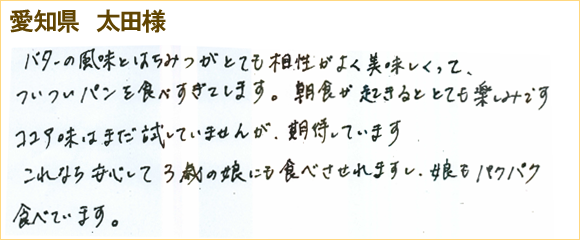 愛知県 太田様
バターの風味とはちみつがとても相性がよく美味しくって、
ついついパンを食べすぎてします。朝食が起きるととても楽しみです
ココア味はまだ試していませんが、期待しています
これなら安心して3歳の娘にも食べさせれますし、娘もパクパク
食べています。